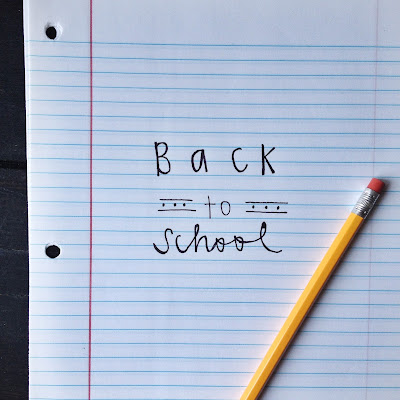 Back
to
school